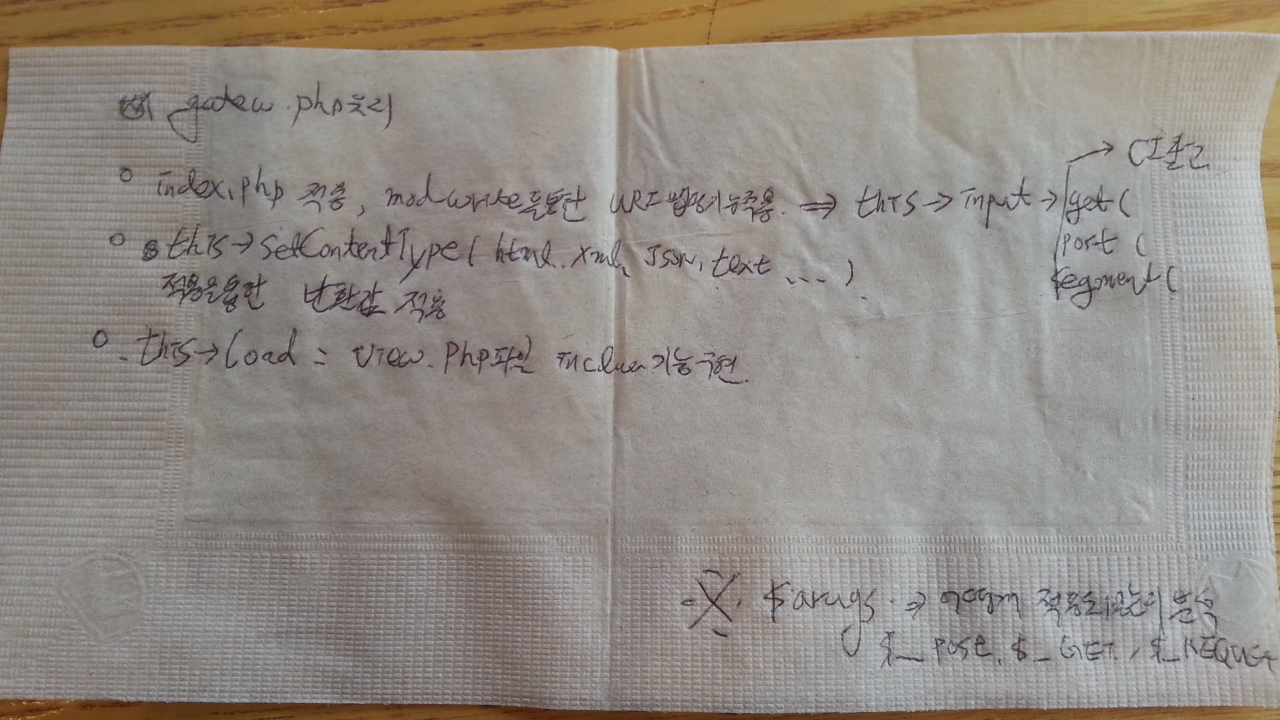 gatew.php
○ index.php 적용, mod write를통한 URI 맵핑기능적용. ⇒ this → input → get (
→ CI참고
post (
segment (
○ $this → SetContentType ( html, xml, Json, text .... )
적용을통한 반환값 적용
○ this → load = view.php파일 기능구현.
※. ⇒ 적용되있는지
$_POST, $_GET, $_REQUEST